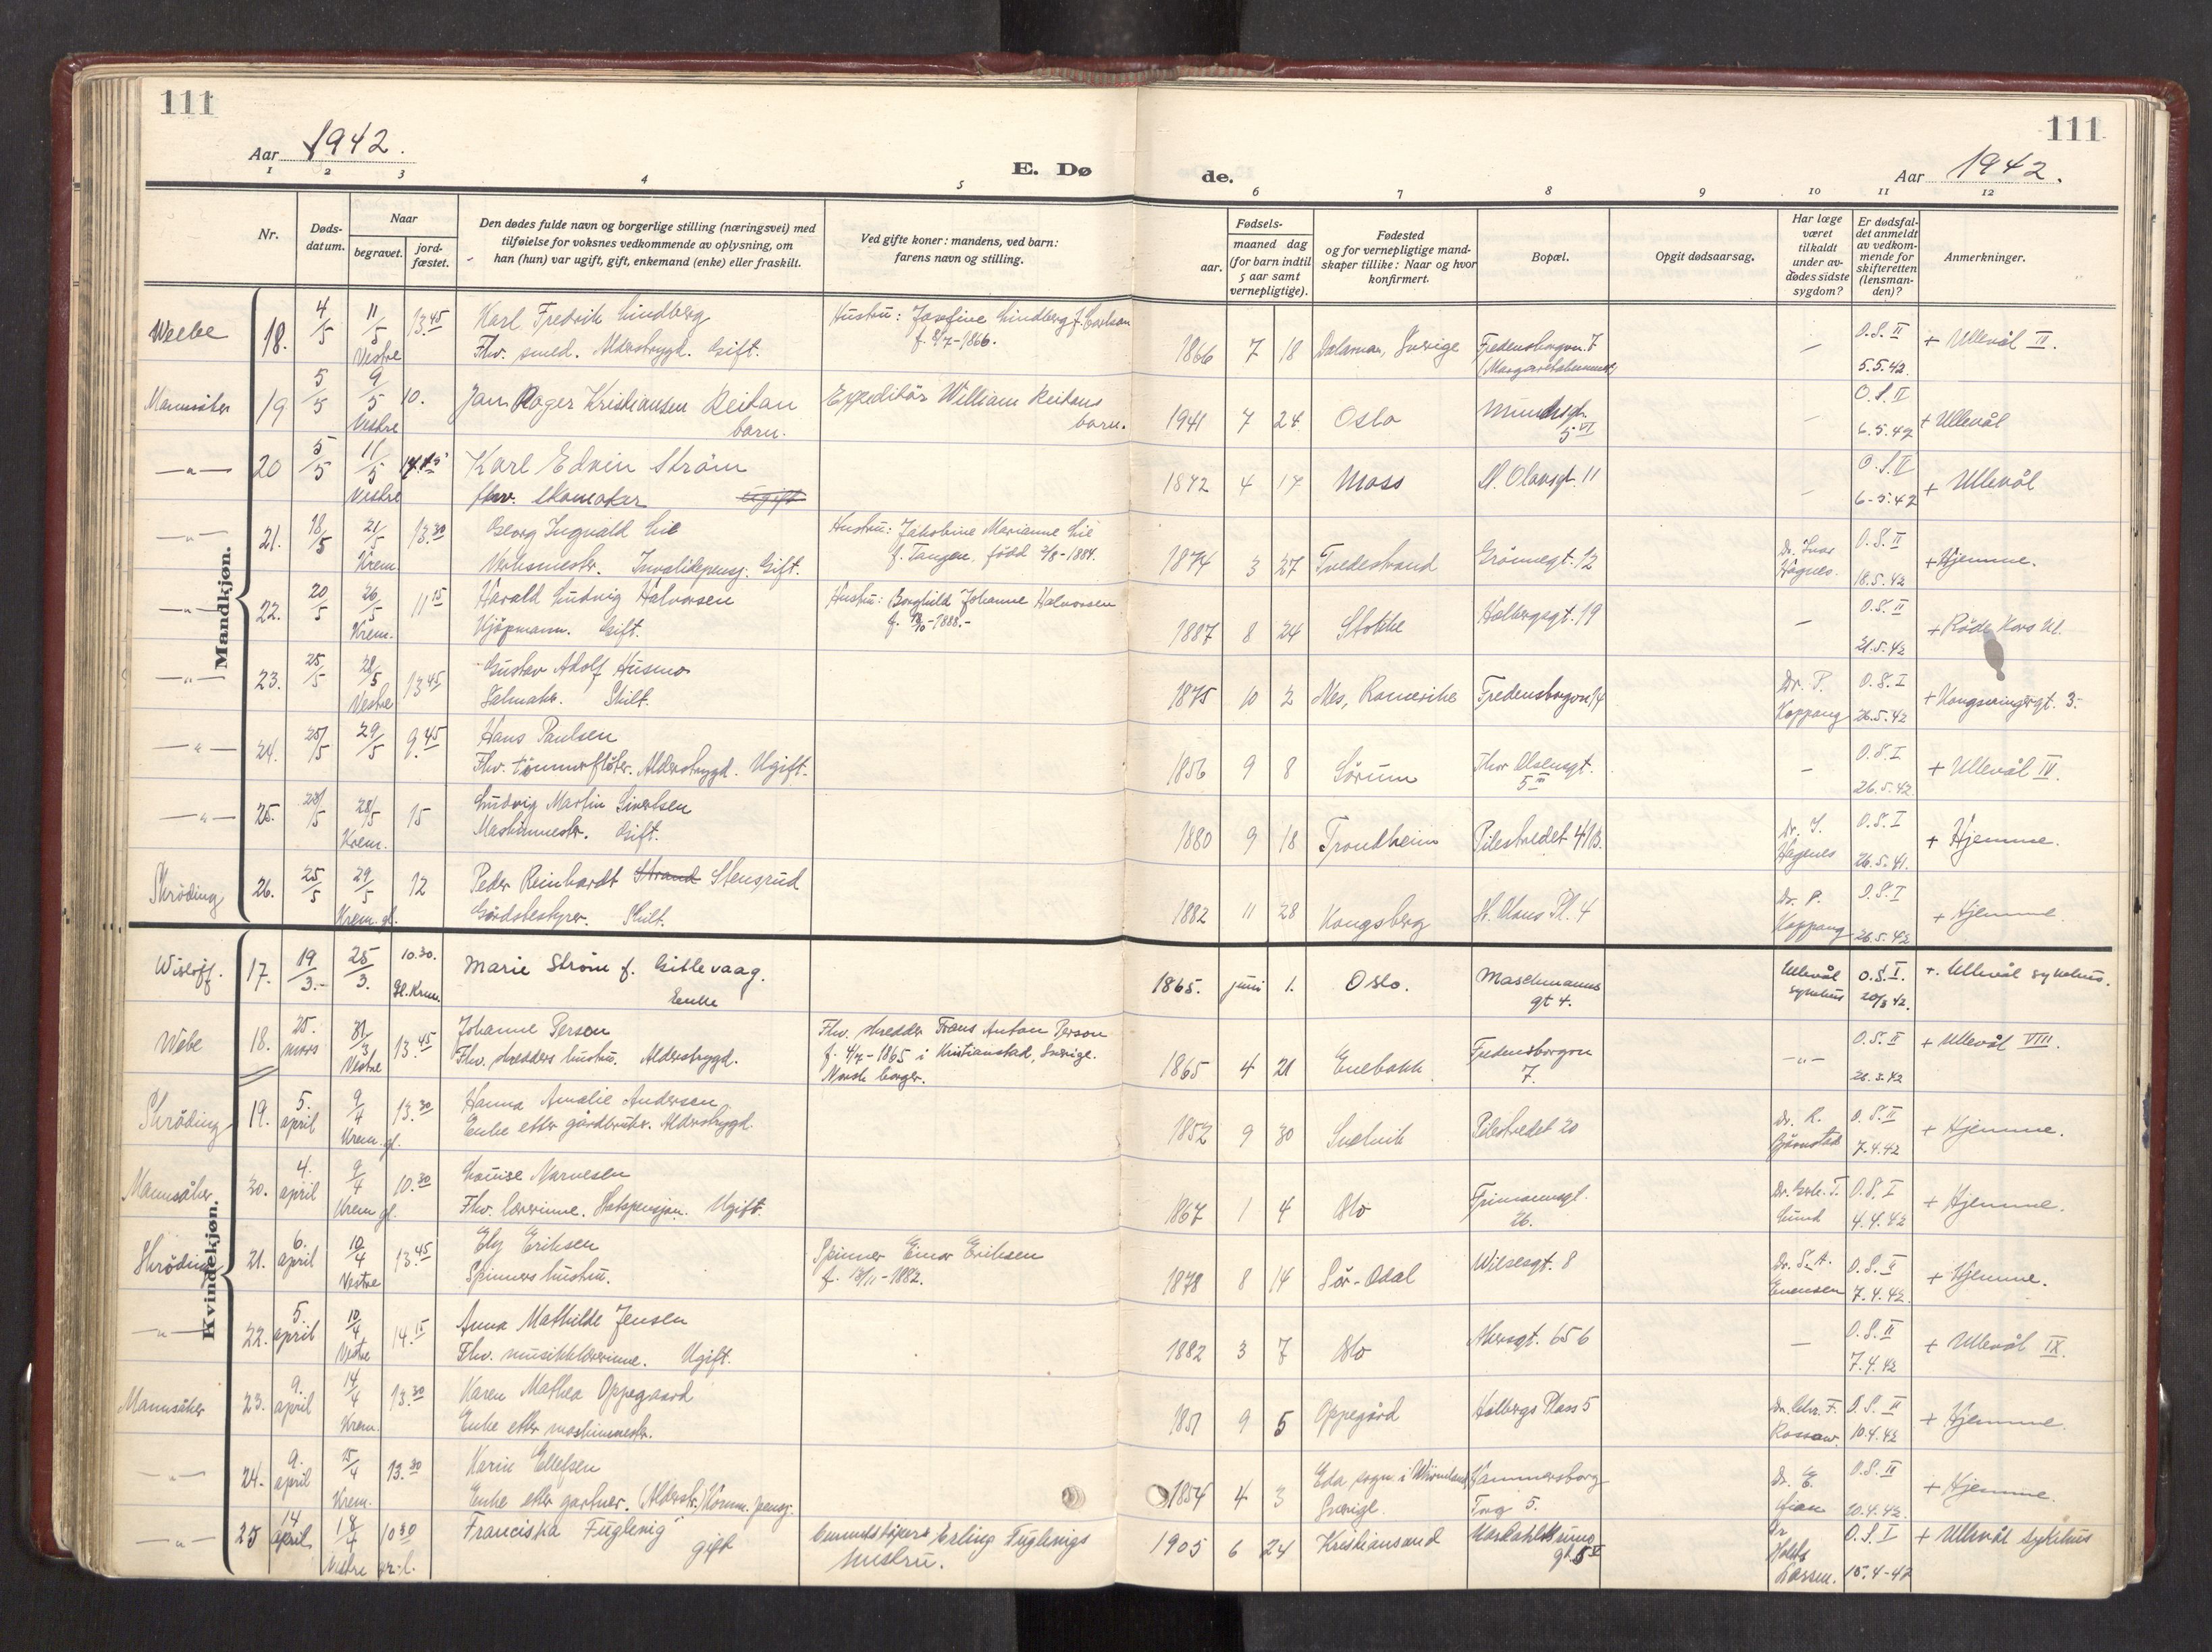 111
111
Aar 1942.
E. Døde.
Aar 1942.
1 2 3 4 5 6 7 8 9 10 11 12
Nr.
Døds-datum.
Naar
begravet.
jord-fæstet.
Den dødes fulde navn og borgerlige stilling (næringsvei) med
tilføielse for voksnes vedkommende av oplysning, om
han (hun) var ugift, gift, enkemand (enke) eller fraskilt.
Ved gifte koner: mandens, ved barn:
farens navn og stilling.
Fødsels-
aar.
maaned dag
(for barn indtil
5 aar samt
vernepligtige).
Fødested
og for vernepligtige mand-
skaper tillike: Naar og hvor
konfirmert.
Bopæl.
Opgit dødsaarsag.
Har læge
været
tilkaldt
under av-
dødes sidste
sygdom?
Er dødsfal-
det anmeldt
av vedkom-
mende for
skifteretten
(lensman-
den)?
Anmerkninger.
Mandkjøn.
18. 4/5 11/5 Vestre 13.45 Karl Fredrik Lindberg Hustru: Josefine Lindberg f. Carlson
Fhv. smed. Alderstrygd. Gift. 1866 7 18 Dalarna, Sverige Fredensborgvn. 7 — O.S. II 5.5.42. + Ullevål IV.
Mannsåker 19 5/5 9/5 Vestre 10. Jan Roger Kristiansen Reitan Expeditør William Reitans
barn. barn. 1941 7 24 Oslo Munchsgt. 5 VI — O.S. II 6.5.42 + Ullevål
—"— 20 5/5 11/5 Vestre Karl Edvin Strøm
fhv. skomaker ugift 1872 4 17 Moss St. Olavsgt. 11 — O.S. II 6-5-42 + Ullevål
—"— 21. 18/5 21/5 Krem. 13.30 Georg Ingvald Lie Hustru: Jakobine Marianne Lie
Verksmester. Invalidepensj. Gift. f. Tangen, født 2/8-1884. 1874 3 27 Tvedestrand Grønnegt. 12 O.S. II 18.5.42 + Hjemme.
—"— 22. 20/5 26/5 Krem. 11 15 Harald Ludvig Halvorsen Hustru: Borghild Johanne Halvorsen
Kjøpmann. Gift. 1887 8 24 Stokke Holbergsgt. 19 — O.S. II 21.5.42 + Røde Kors Kl.
—"— 23. 25/5 28/5 Vestre 13 45 Gustav Adolf Husmo
Salmak. Skilt. 1875 10 2 Nes, Romerike Fredensborgvn. 14 Dr. P. Koppang O.S. I 26.5.42 + Kongsvingergt. 3.
—"— 24. 25/5 29/5 9.45 Hans Paulsen
Fhv. tømmerfløter. Alderstrygd. Ugift. 1856 9 8 Sørum Thor Olsensgt. 5 III — O.S. I 26.5.42. + Ullevål IV.
—"— 25. 28/5 Krem. 15 Ludvig Martin Sivertsen
Maskinmestr. Gift. 1880 9 18 Trondheim Pilestredet 41B. Dr. J. Hagenes O.S. I 26.5.41. + Hjemme.
Skrøding 26. 25/5 29/5 Krem. gl. 12 Peder Reinhardt Strand Stensrud
Gårdsbestyrer. Skilt. 1882 11 28 Kongsberg St. Olavs Pl. 4 Dr. P. Koppang O.S. I 26.5.42 + Hjemme
Kvindekjøn.
Wisløff. 17. 19/3.- 25/3. 10.30. Gl. Krem. Marie Strøm f. Gitlevaag.
Enke 1865. juni 1. Oslo. Maschmanns gt 4. Ullevål sykehus O.S. I. 20/3 42. +. Ullevål sykehus.
18. 25. mars 31/3 Vestre 13.45 Johanne Person Fhv. skredder Frans Anton Person
Fhv. skredders hustru. Alderstrygd. f. 4/7-1865 i Kristianstad, Sverige.
Norsk borger. 1865 4 21 Enebakk Fredensborgvn 7. —"— O.S. II 26.3.42 + Ullevål VIII.
Skrøding 19. 5. april 9/4 Krem. gl. 13.30 Hanna Amalie Andersen
Enke etter gårdbruker. Alderstrygd. 1852 9 30 Svelvik Pilestredet 20 Dr. R. Bjørnstad O.S. II 7.4.42 + Hjemme.
Mannsåker. 20. 4. april 9/4 Krem gl. 10.30 Louise Narvesen
Fhv. lærerinne. Statspensjon. Ugift. 1867 1 4 Oslo Frimannsgt. 26. Lund O.S. I 4.4.42 + Hjemme.
Skrøding 21. 6. april 10/4 Vestre 13.45 Ely Eriksen Spinner Einar Eriksen
Spinners hustru. f. 13/11-1882. 1878 8 14 Sør-Odal Wilsesgt. 8 Dr. S.A. Evensen O.S. II 7.4.42. + Hjemme.
—"— 22. 5. april 10/4 Vestre 14.15 Anna Mathilde Jensen
Fhv. musikklærerinne. Ugift. 1882 3 7 Oslo Akersgt. 65 b — O.S. II 7.4.42 + Ullevål IX.
Mannsåker 23. 9. april 14/4 Krem. 13.30 Karen Mathea Oppegaard
Enke etter maskinmestr. 1851 9 5 Oppegård Holbergs Plass 5 Dr. Chr. F. O.S. II 10.4.42 + Hjemme.
—"— 24. 9. april 15/4 Krem. 13.30 Karin Ellefsen
Enke etter gartner. (Alderstr.) Komm. pensj. 1854 4 3 Eda sogn i Wärmland, Sverige. Hammersborg Torg 5. Dr. E. O.S. II 20.4.42. + Hjemme.
—"— 25 14 april 18/4 Vestre gr.l. 10 30 Franciska Fuglevig Erling Fuglevigs
gift hustru. 1905 6 24 Kristiansand Dr Larssen. O.S. I 15.4-42 + Ullevål sykehus